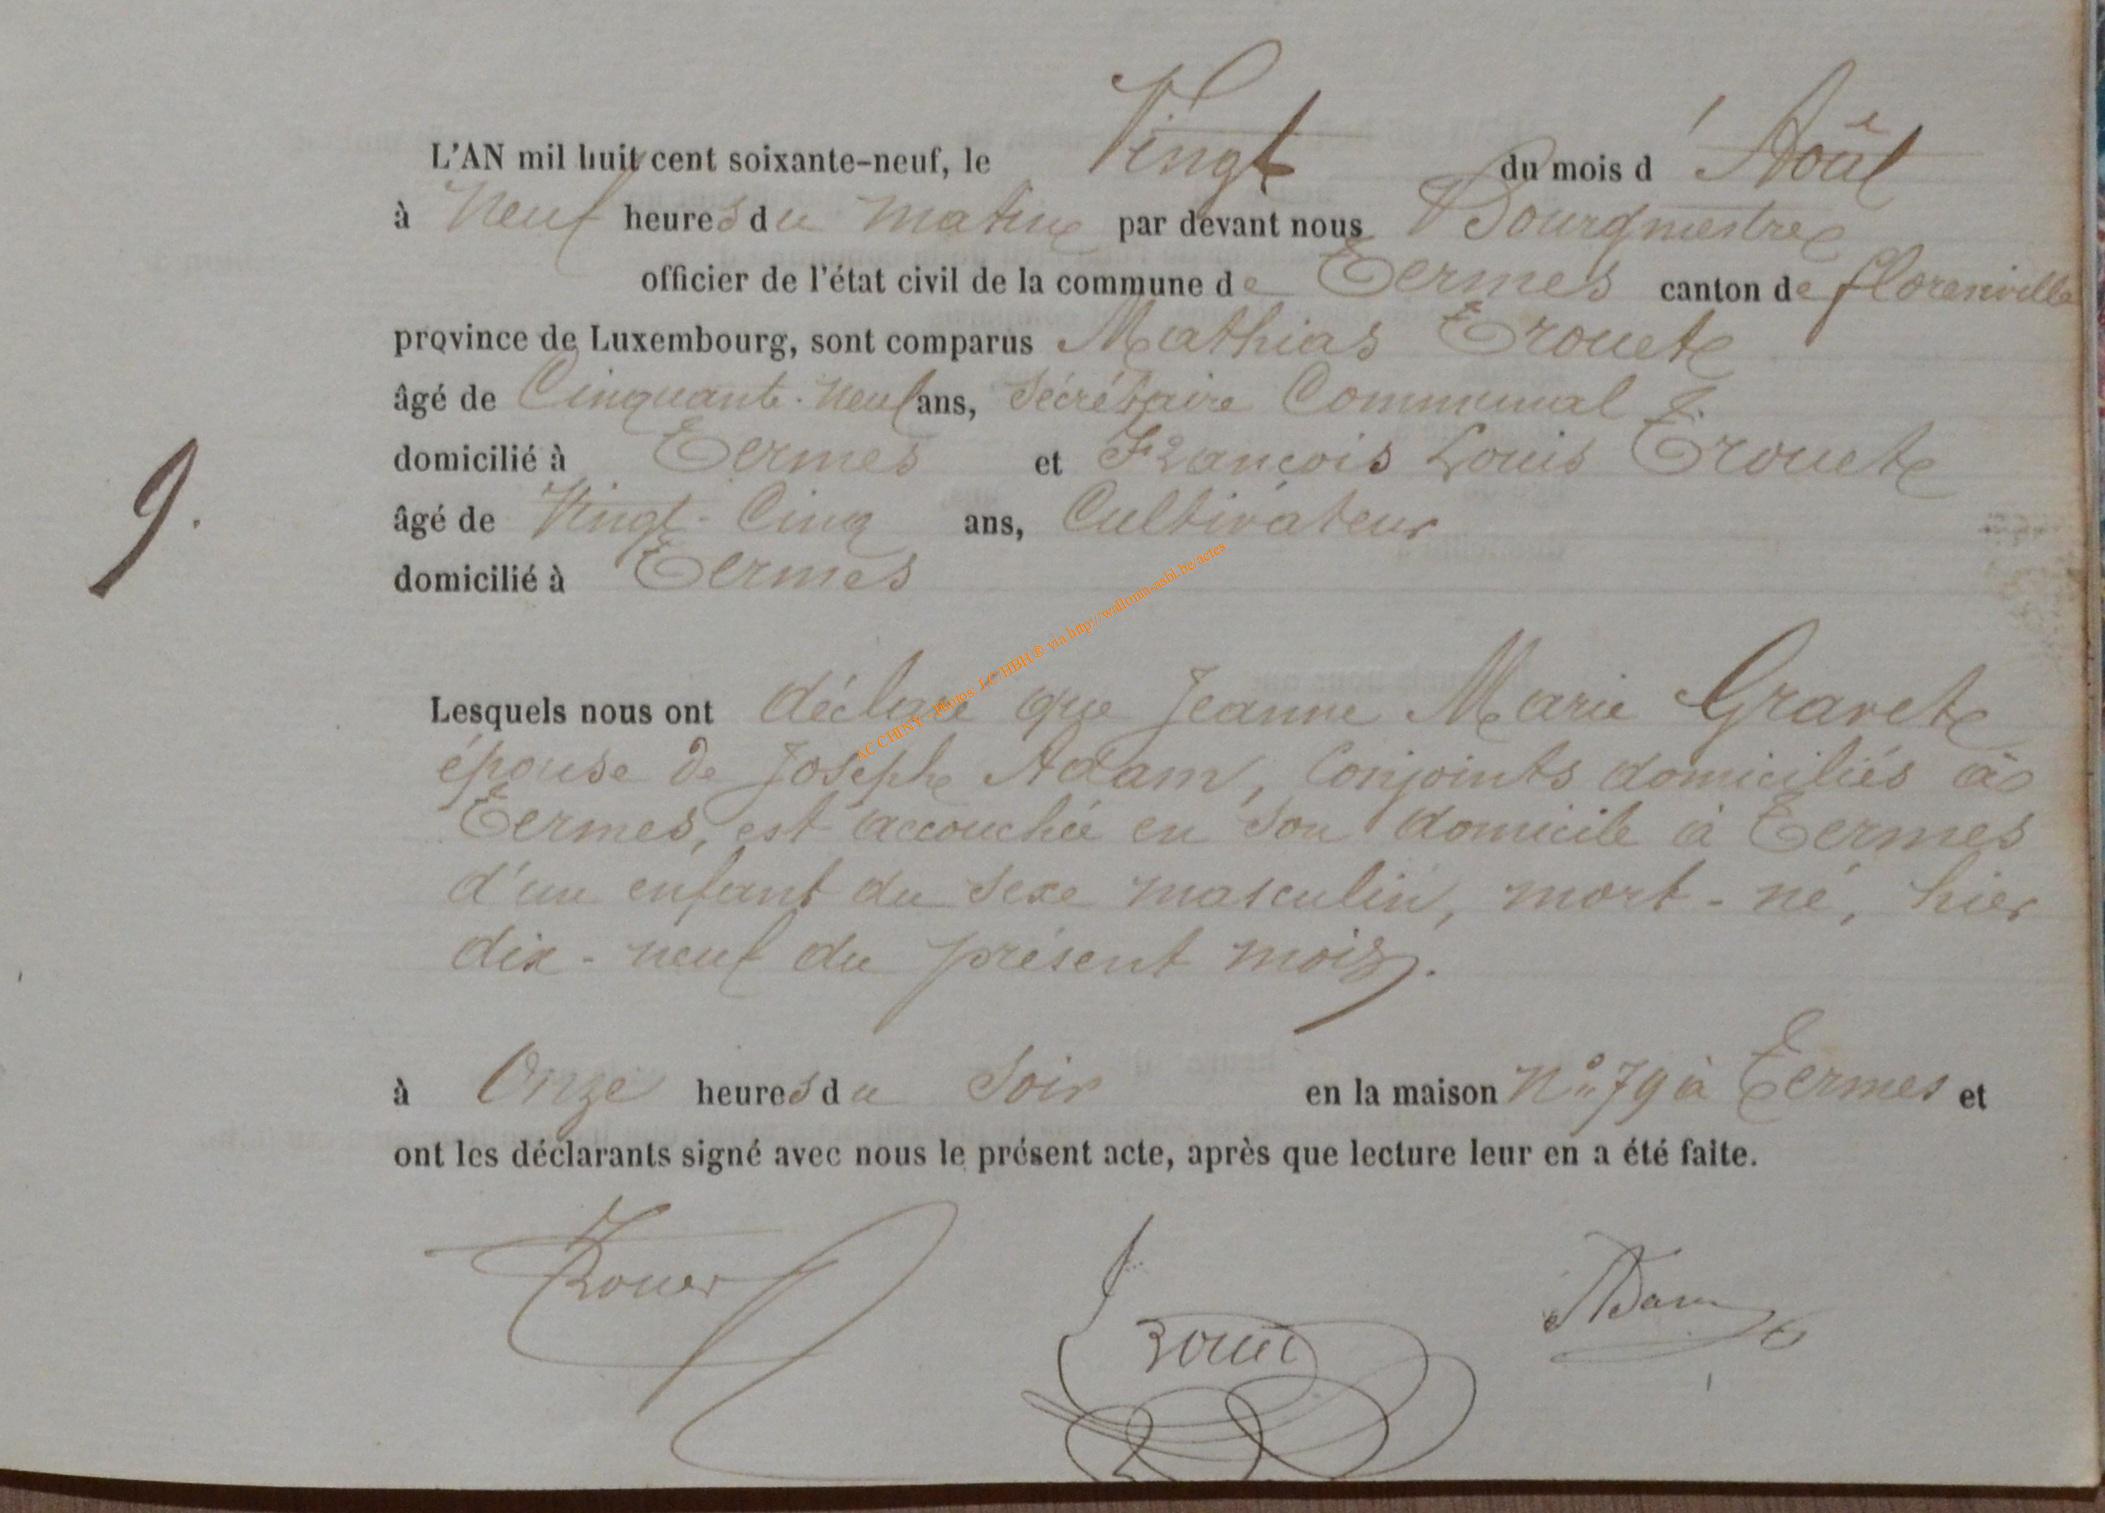 L'AN mil huit cent soixante-neuf, le Vingt du mois d'Août
à Neuf heures du matin par devant nous Bourgmestre
officier de l'état civil de la commune de Termes canton de florenville
province de Luxembourg, sont comparus Mathias Trouet
âgé de Cinquante-neuf ans, Sécrétaire Communal
domicilié à Termes et François Louis Trouet
âgé de Vingt-Cinq ans, Cultivateur
domicilié à Termes
9.
Lesquels nous ont déclaré que Jeanne Marie Gravet
épouse de Joseph Adam, Conjoints domiciliés à
Termes, est accouchée en son domicile à Termes
d'un enfant du sexe masculin, mort-né, hier
dix-neuf du présent mois.
à Onze heures du Soir en la maison No 79 à Termes et
ont les déclarants signé avec nous le présent acte, après que lecture leur en a été faite.
Trouet Adam
AC CHINY - Photos J.C. HBH © via http://wallonia-asbl.be/actes